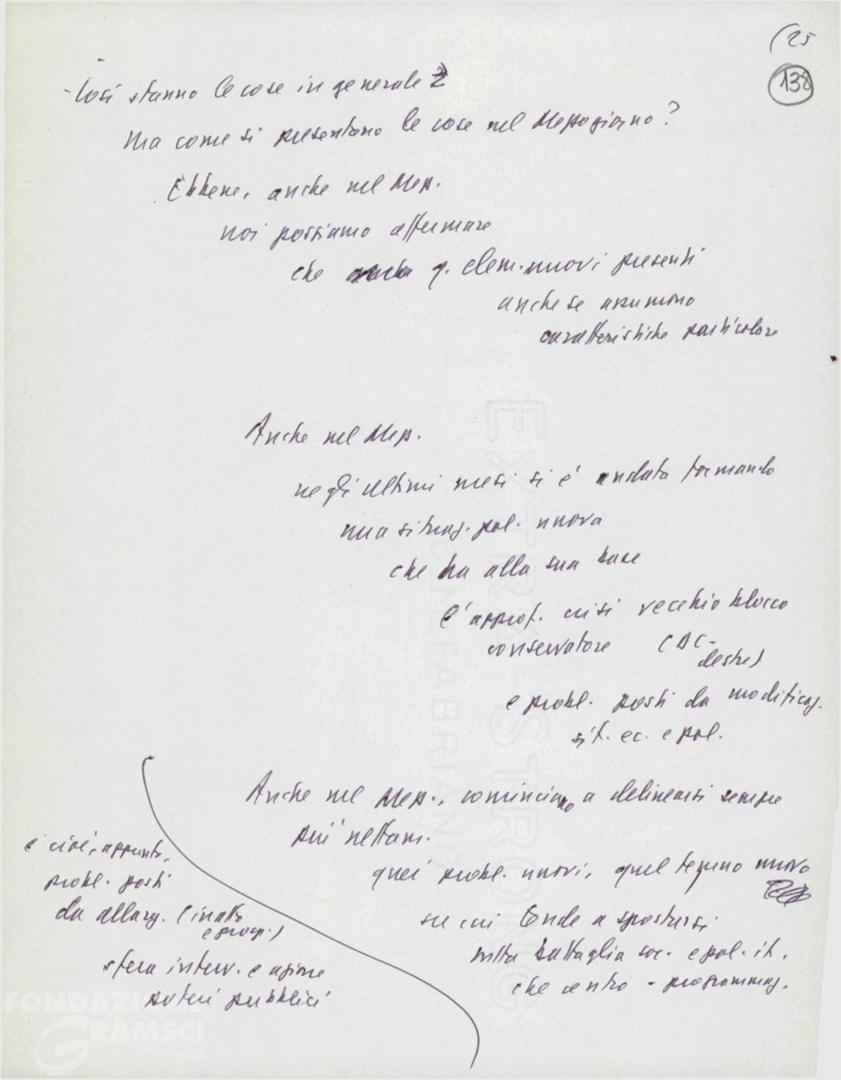 (25
138
- Così stanno le cose in generale
Ma come si presentano le cose nel Mezzogiorno?
Ebbene, anche nel Mezz.
noi possiamo affermare
che q. elem. nuovi presenti
anche se assumono
caratteristiche particolare
Anche nel Mezz.
negli ultimi mesi si è andata formando
una situaz. pol. nuova
che ha alla sua base
l'approf. crisi vecchio blocco
conservatore (DC-
destre)
e probl. posti da modificaz.
sit. ec. e pol.
Anche nel Mezz., cominciano a delinearsi sempre
più nettam.
quei probl. nuovi, quel terreno nuovo
su cui tende a spostarsi
tutta battaglia soc. e pol. it.
che centro - programmaz.
e cioè, appunto,
probl. posti
da allarg. (in atto
e prosp.)
sfera interv. e azione
poteri pubblici
EXTRA STRONG
FABRIANO
FONDAZIONE
GRAMSCI